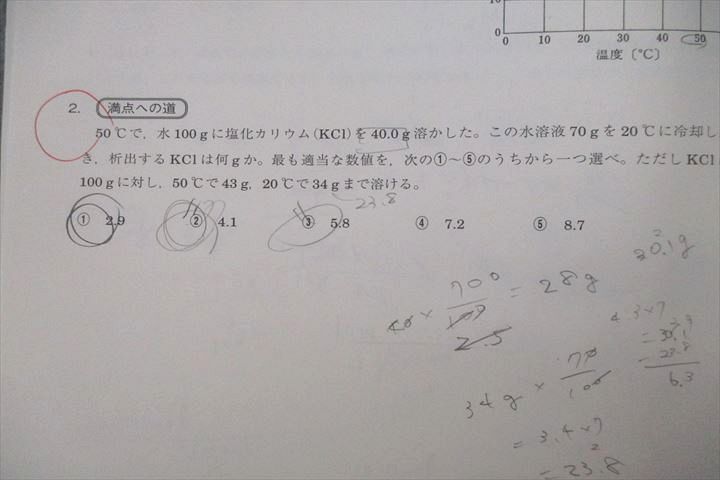 10
0
0 10 20 30 40 50
温度〔℃〕
2. 満点への道
50℃で,水100gに塩化カリウム(KCl)を40.0g溶かした。この水溶液70gを20℃に冷却し
き,析出するKClは何gか。最も適当な数値を,次の①〜⑤のうちから一つ選べ。ただしKCl
100gに対し,50℃で43g,20℃で34gまで溶ける。
23.8
① 2.9 ② 4.1 ③ 5.8 ④ 7.2 ⑤ 8.7
= 28g
4.3×7
34g ×
= 3.4×7
6.3
= 23.8